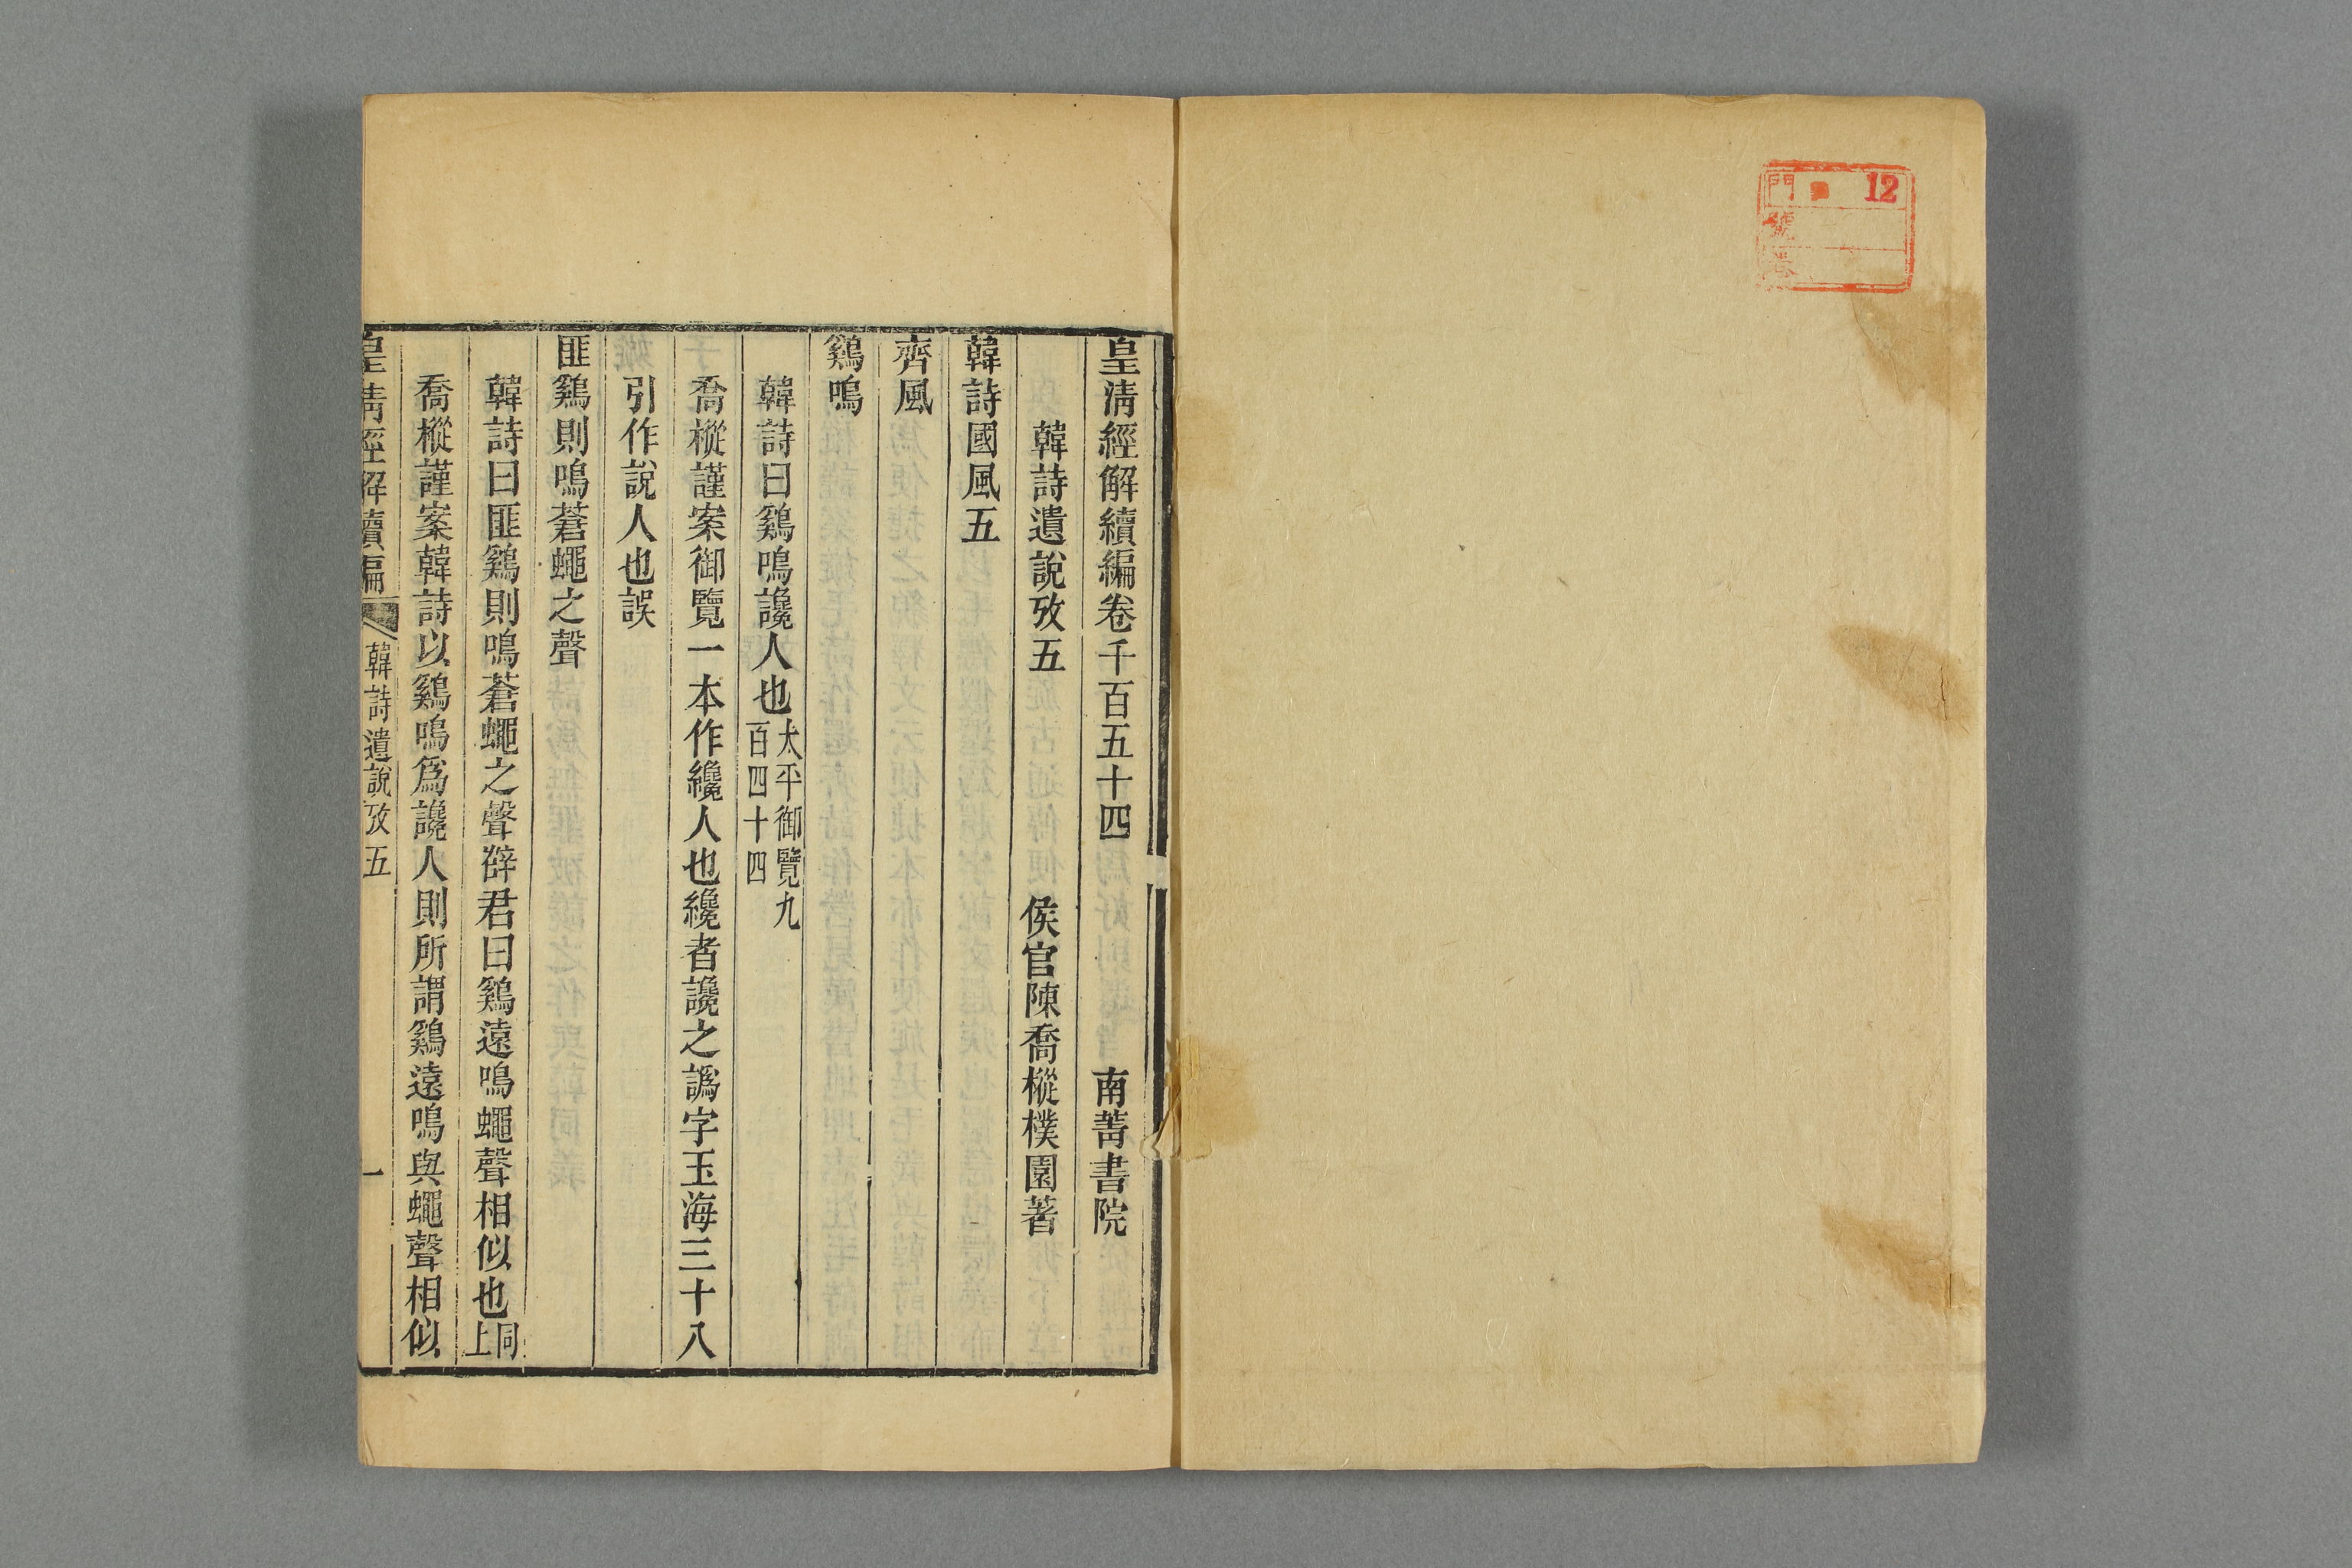 12
門
號
皇清經解續編卷千百五十四 南菁書院
韓詩遺說攷五 侯官陳喬樅樸園著
韓詩國風五
齊風
鷄鳴
韓詩曰鷄鳴讒人也太平御覽九百四十四
喬樅謹案御覽一本作纔人也纔者讒之譌字玉海三十八
引作說人也誤
匪鷄則鳴蒼蠅之聲
韓詩曰匪鷄則鳴蒼蠅之聲薛君曰鷄遠鳴蠅聲相似也同上
喬樅謹案韓詩以鷄鳴爲讒人則所謂鷄遠鳴與蠅聲相似
皇清經解續編 韓詩遺說攷五 一